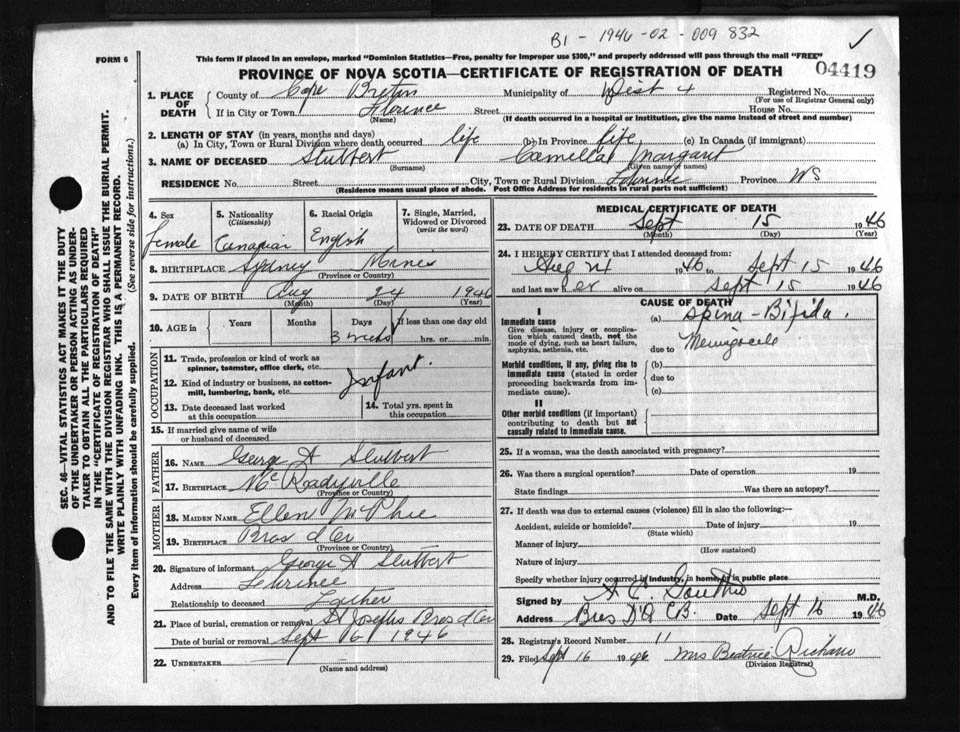 B1 - 1946 - 02 - 009 832
✓
FORM 6
This form if placed in an envelope, marked "Dominion Statistics—Free, penalty for improper use $300," and properly addressed will pass through the mail "FREE"
PROVINCE OF NOVA SCOTIA—CERTIFICATE OF REGISTRATION OF DEATH
04419
SEC. 46—VITAL STATISTICS ACT MAKES IT THE DUTY
OF THE UNDERTAKER OR PERSON ACTING AS UNDER-
TAKER TO OBTAIN ALL THE PARTICULARS REQUIRED
IN THE "CERTIFICATE OF REGISTRATION OF DEATH"
AND TO FILE THE SAME WITH THE DIVISION REGISTRAR WHO SHALL ISSUE THE BURIAL PERMIT.
WRITE PLAINLY WITH UNFADING INK. THIS IS A PERMANENT RECORD.
Every item of information should be carefully supplied. (See reverse side for instructions.)
1. PLACE OF DEATH
County of Cape Breton Municipality of Dist 4 Registered No.
(For use of Registrar General only)
If in City or Town Florence Street House No.
(Name) (If death occurred in a hospital or institution, give the name instead of street and number)
2. LENGTH OF STAY (in years, months and days)
(a) In City, Town or Rural Division where death occurred life (b) In Province life (c) In Canada (if immigrant)
3. NAME OF DECEASED Stubbert Camella Margaret
(Surname) (Given name or names)
RESIDENCE No. Street City, Town or Rural Division Florence Province NS
(Residence means usual place of abode. Post Office Address for residents in rural parts not sufficient)
4. Sex female
5. Nationality (Citizenship) Canadian
6. Racial Origin English
7. Single, Married, Widowed or Divorced (write the word)
8. BIRTHPLACE Sydney Mines
(Province or Country)
9. DATE OF BIRTH Aug 24 1946
(Month) (Day) (Year)
10. AGE in Years Months Days 3 weeks If less than one day old hrs. or min.
OCCUPATION
11. Trade, profession or kind of work as spinner, teamster, office clerk, etc. Infant.
12. Kind of industry or business, as cotton-mill, lumbering, bank, etc.
13. Date deceased last worked at this occupation
14. Total yrs. spent in this occupation
15. If married give name of wife or husband of deceased
FATHER
16. NAME George A Stubbert
17. BIRTHPLACE
(Province or Country)
MOTHER
18. MAIDEN NAME Ellen McPhee
19. BIRTHPLACE Bras d'Or
(Province or Country)
20. Signature of informant George A Stubbert
Address Florence
Relationship to deceased Father
21. Place of burial, cremation or removal St Josephs Bras d'Or
Date of burial or removal Sept 16 1946
22. UNDERTAKER
(Name and address)
MEDICAL CERTIFICATE OF DEATH
23. DATE OF DEATH Sept 15 1946
(Month) (Day) (Year)
24. I HEREBY CERTIFY that I attended deceased from:
Aug 24 1946 to Sept 15 1946
and last saw her alive on Sept 15 1946
CAUSE OF DEATH
I
Immediate cause
Give disease, injury or complication which caused death, not the mode of dying, such as heart failure, asphyxia, asthenia, etc.
(a) Spina - Bifida.
due to Meningocele
Morbid conditions, if any, giving rise to immediate cause (stated in order proceeding backwards from immediate cause).
(b)
due to
(c)
II
Other morbid conditions (if important) contributing to death but not causally related to immediate cause.
25. If a woman, was the death associated with pregnancy?
26. Was there a surgical operation? Date of operation 19
State findings Was there an autopsy?
27. If death was due to external causes (violence) fill in also the following:—
Accident, suicide or homicide? Date of injury 19
(State which)
Manner of injury
(How sustained)
Nature of injury
Specify whether injury occurred in industry, in home, or in public place
Signed by M.D.
Address Bras D'Or C.B. Date Sept 16 1946
28. Registrar's Record Number 11
29. Filed Sept 16 1946 Mrs Beatrice
(Division Registrar)